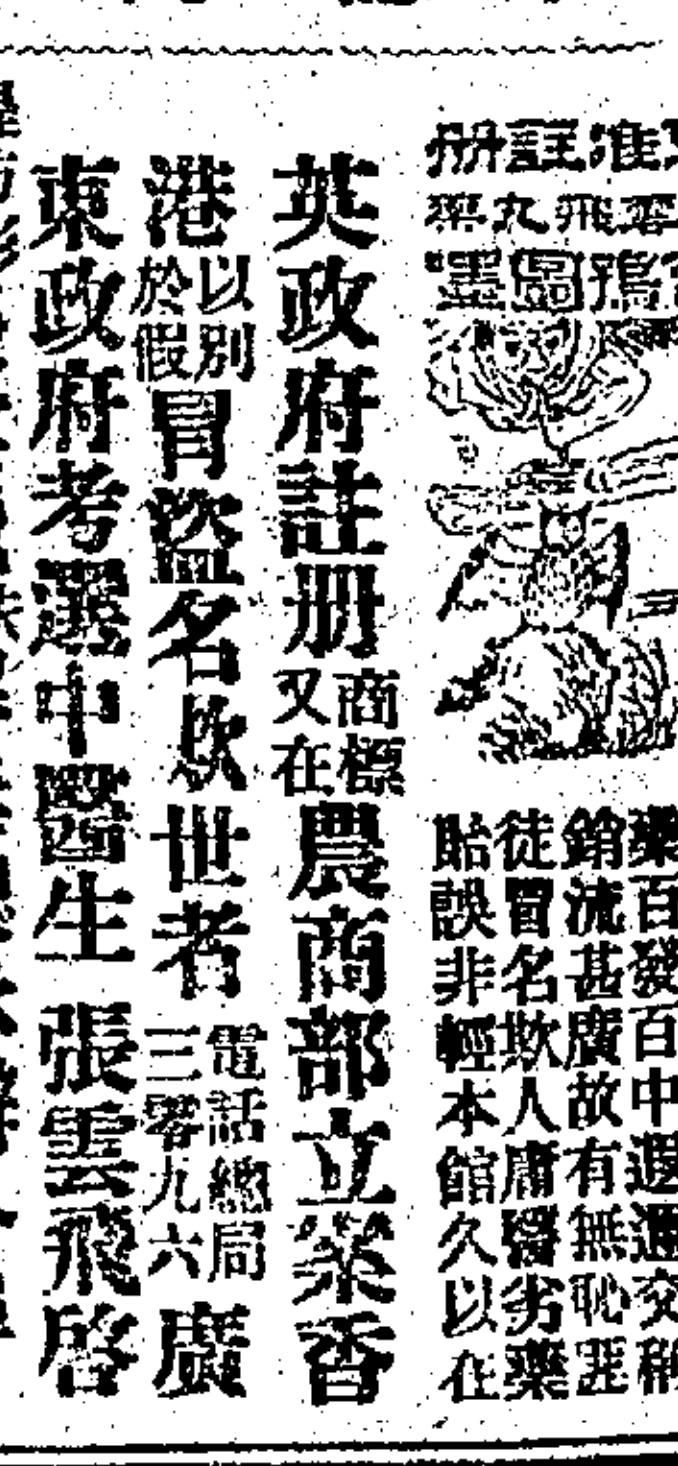 准註册
雲飛丸藥
圖
藥百發百中遐邇交稱
銷流甚廣故有無恥匪
徒冒名欺人庸醫劣藥
貽誤非輕本館久以在
英政府註册商標又在農商部立案香
港以別於假冒盜名欺世者電話總局三零九六廣
東政府考選中醫生 張雲飛啓